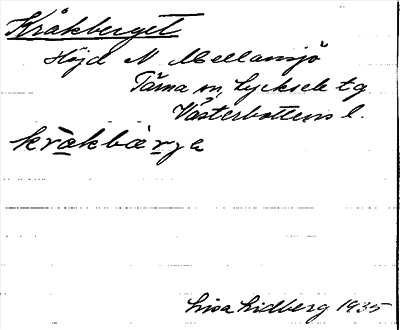 Kråkberget
Höjd N Mellansjö
Tärna sn, Lycksele tg
Västerbottens l.
kràkbærya
Lisa Lidberg 1935